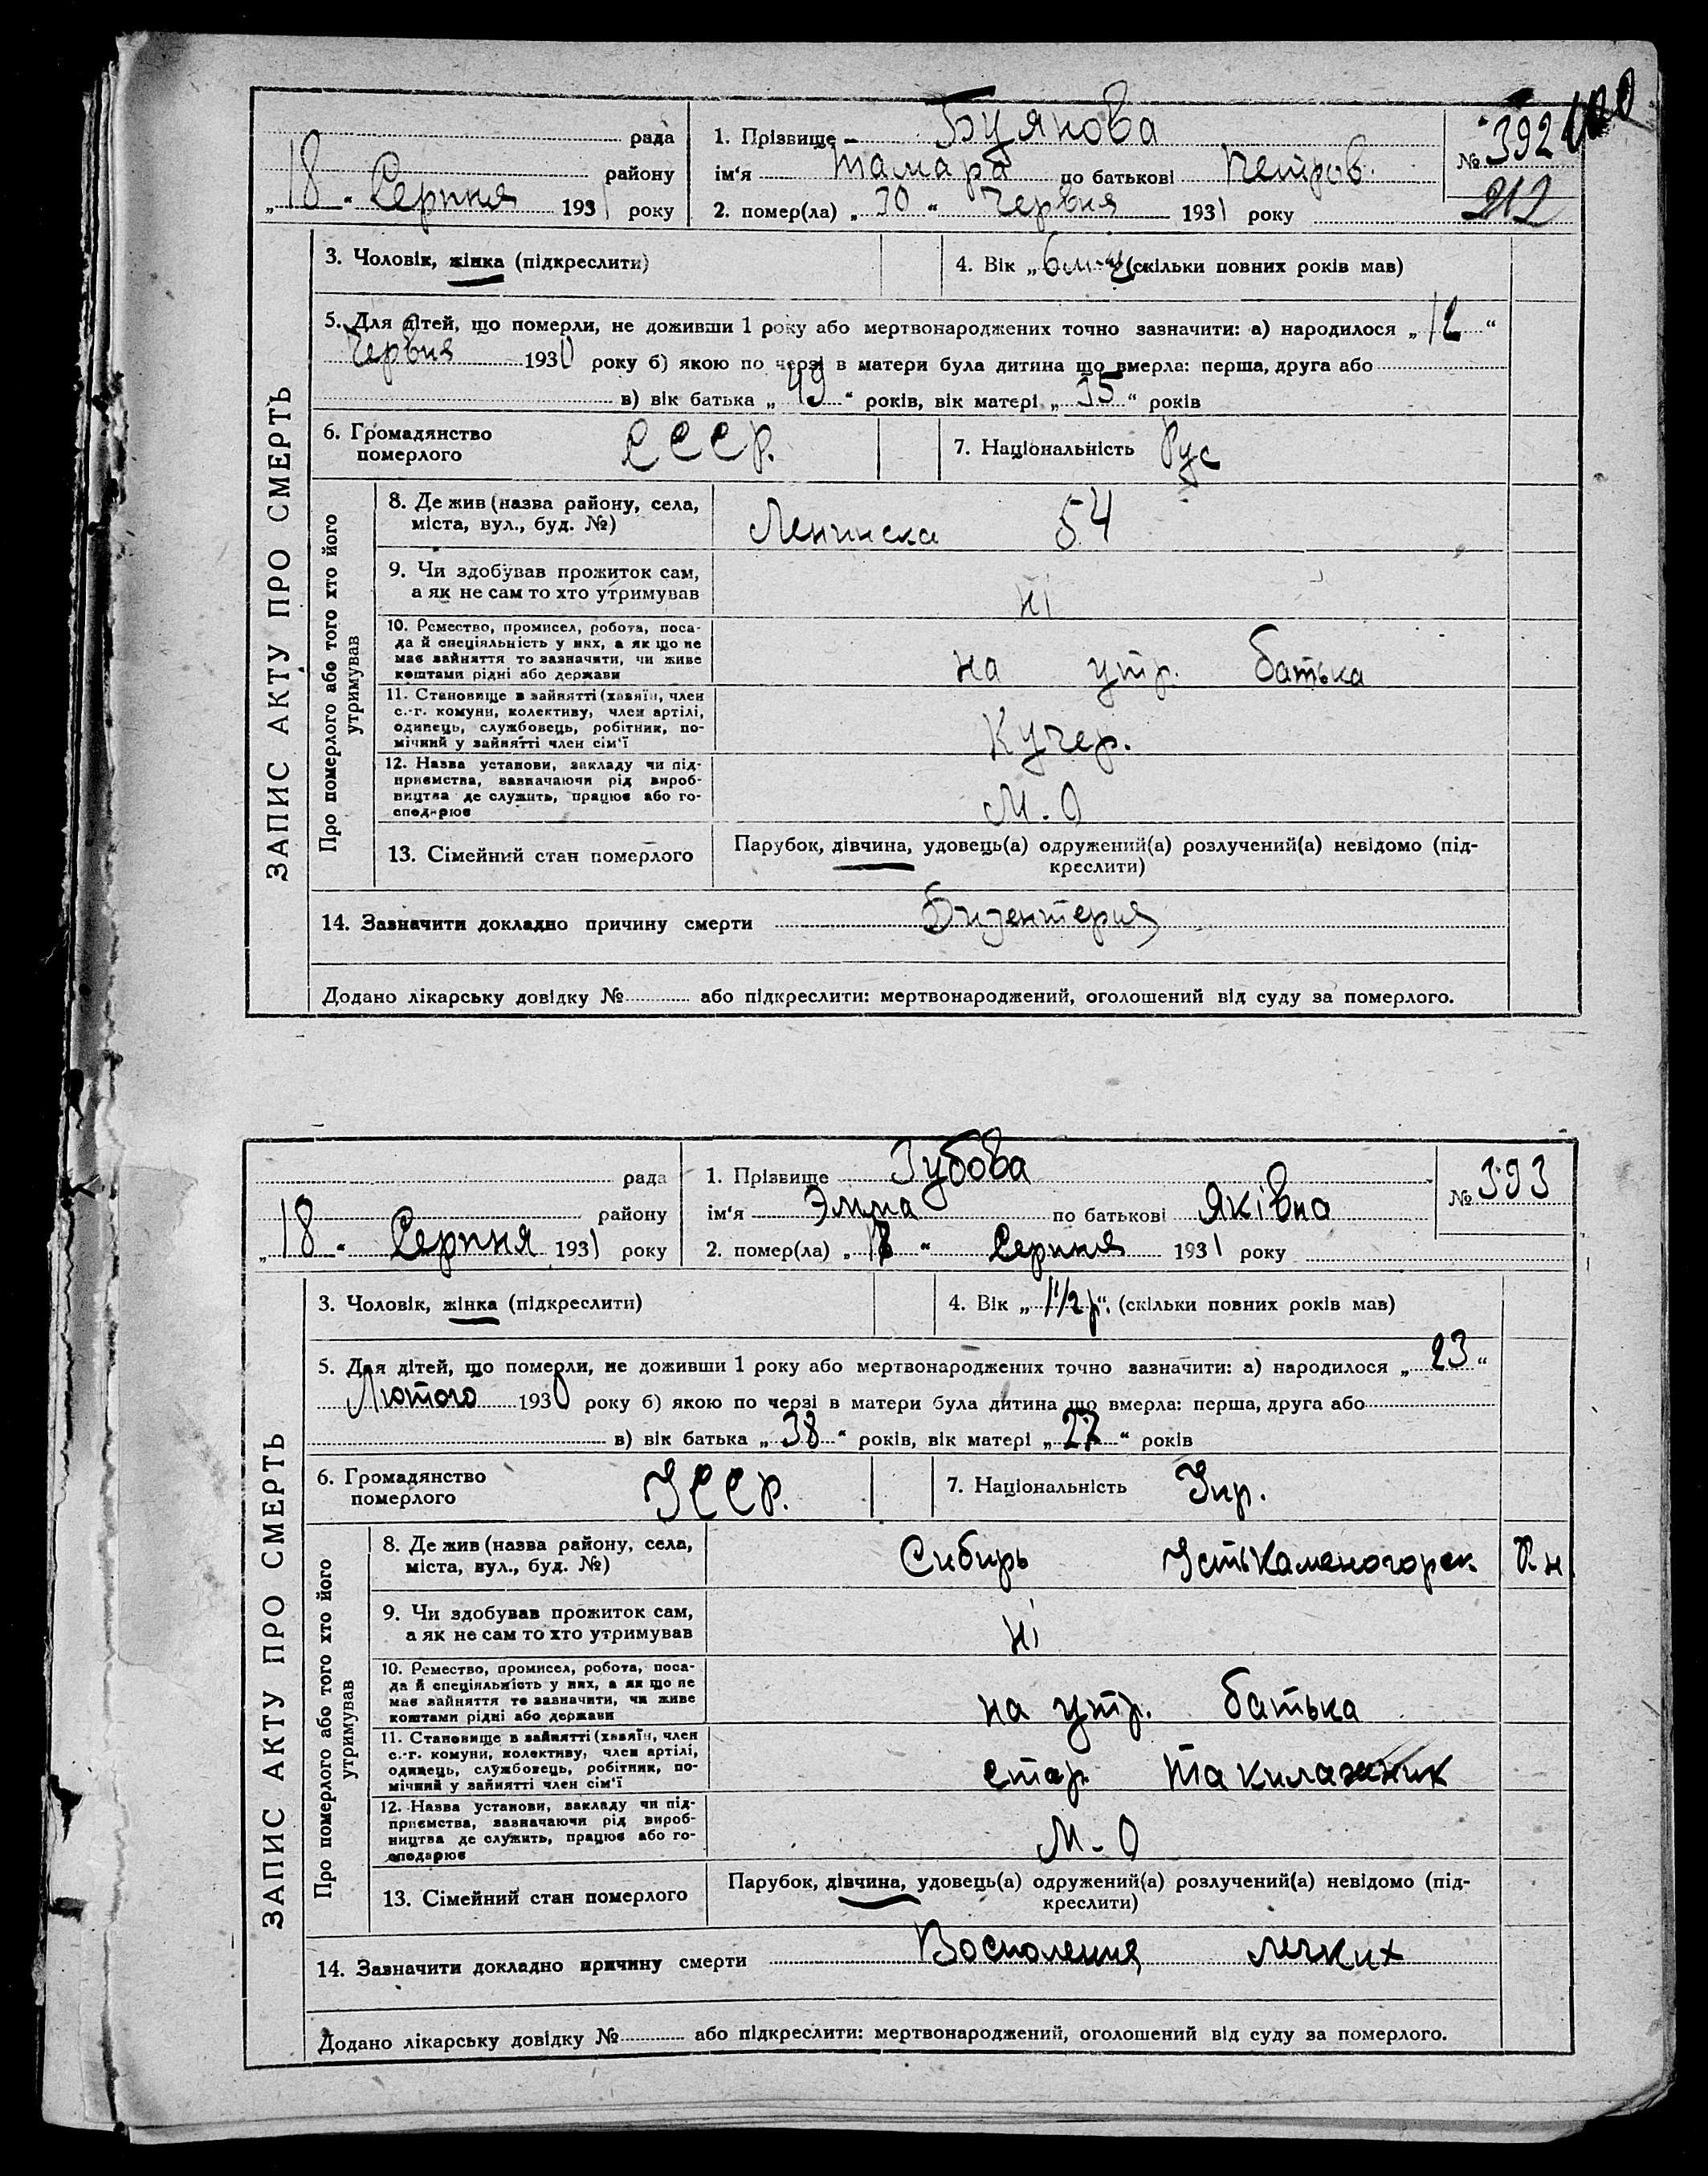 100
рада
района
1. Прізвище Буянова
№ 392
району
ім'я Тамара по батькові Петров.
212
„18" Серпня 1931 року
2. помер(ла) „30" Червня 1931 року
3. Чоловік, жінка (підкреслити)
4. Вік „6 м-ц" (скільки повних років мав)
5. Для дітей, що померли, не доживши 1 року або мертвонароджених точно зазначити: а) народилося „12"
Червня 1930 року б) якою по черзі в матери була дитина що вмерла: перша, друга або
в) вік батька „49" років, вік матері „35" років
6. Громадянство
померлого
СССР.
7. Національність Рус
ЗАПИС АКТУ ПРО СМЕРТЬ
Про померлого або того хто його
утримував
8. Де жив (назва району, села,
міста, вул., буд. №)
Ленинска 54
9. Чи здобував прожиток сам,
а як не сам то хто утримував
ні
10. Ремество, промисел, робота, поса-
да й спеціяльність у них, а як що не
має зайняття то зазначити, чи живе
коштами рідні або держави
на утр. батька
11. Становище в зайнятті (хазяїн, член
с.-г. комуни, колективу, член артілі,
одинець, службовець, робітник, по-
мічний у зайнятті член сім'ї
Кучер.
12. Назва установи, закладу чи під-
приємства, зазначаючи рід вироб-
ництва де служить, працює або го-
сподарює
М.О
13. Сімейний стан померлого
Парубок, дівчина, удовець(а) одружений(а) розлучений(а) невідомо (під-
креслити)
14. Зазначити докладно причину смерти Дизентерия
Додано лікарську довідку № або підкреслити: мертвонароджений, оголошений від суду за померлого.
рада
1. Прізвище Зубова
№ 393
району
ім'я Эмма по батькові Яківна
„18" Серпня 1931 року
2. помер(ла) „18" Серпня 1931 року
3. Чоловік, жінка (підкреслити)
4. Вік „1 1/2 р". (скільки повних років мав)
5. Для дітей, що померли, не доживши 1 року або мертвонароджених точно зазначити: а) народилося „23"
Лютого 1930 року б) якою по черзі в матери була дитина що вмерла: перша, друга або
в) вік батька „38" років, вік матері „27" років
6. Громадянство
померлого
УССР.
7. Національність Укр.
ЗАПИС АКТУ ПРО СМЕРТЬ
Про померлого або того хто його
утримував
8. Де жив (назва району, села,
міста, вул., буд. №)
Сибирь Устькаменогорск
9. Чи здобував прожиток сам,
а як не сам то хто утримував
ні
10. Ремество, промисел, робота, поса-
да й спеціяльність у них, а як що не
має зайняття то зазначити, чи живе
коштами рідні або держави
на утр. батька
11. Становище в зайнятті (хазяїн, член
с.-г. комуни, колективу, член артілі,
одинець, службовець, робітник, по-
мічний у зайнятті член сім'ї
стар. такилажник
12. Назва установи, закладу чи під-
приємства, зазначаючи рід вироб-
ництва де служить, працює або го-
сподарює
М-О
13. Сімейний стан померлого
Парубок, дівчина, удовець(а) одружений(а) розлучений(а) невідомо (під-
креслити)
14. Зазначити докладно причину смерти Восполения легких
Додано лікарську довідку № або підкреслити: мертвонароджений, оголошений від суду за померлого.